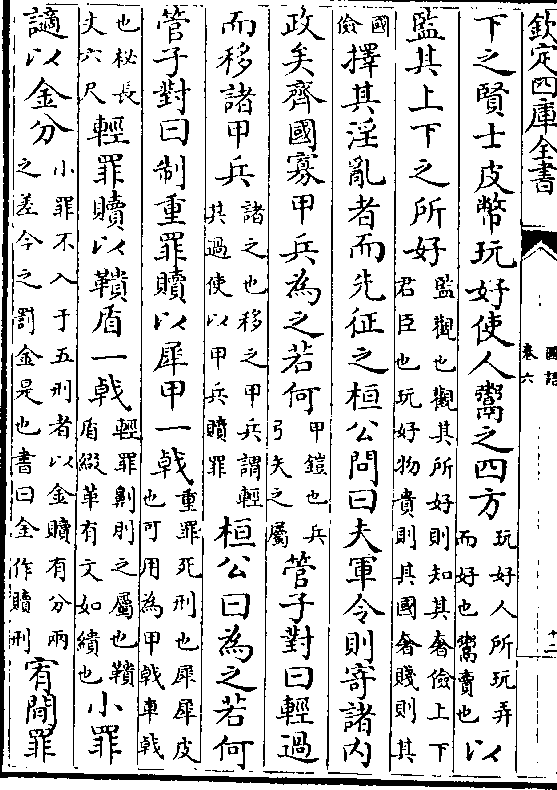 欽定四庫全書
國語
卷六
十二
下之賢士皮幣玩好使人鬻之四方玩好人所玩弄而好也鬻賣也以
監其上下之所好監觀也觀其所好則知其奢儉上下君臣也玩好物貴則其國奢賤則其
國儉擇其淫亂者而先征之桓公問曰夫軍令則寄諸内
政矣齊國寡甲兵為之若何甲鎧也兵弓矢之屬管子對曰輕過
而移諸甲兵諸之也移之甲兵謂輕其過使以甲兵贖罪桓公曰為之若何
管子對曰制重罪贖以犀甲一戟重罪死刑也犀犀皮也可用為甲戟車戟
也柲長丈六尺輕罪贖以鞼盾一戟輕罪劓刖之屬也鞼盾綴革有文如繢也小罪
讁以金分小罪不入于五刑者以金贖有分兩之差今之罰金是也書曰金作贖刑宥閒罪